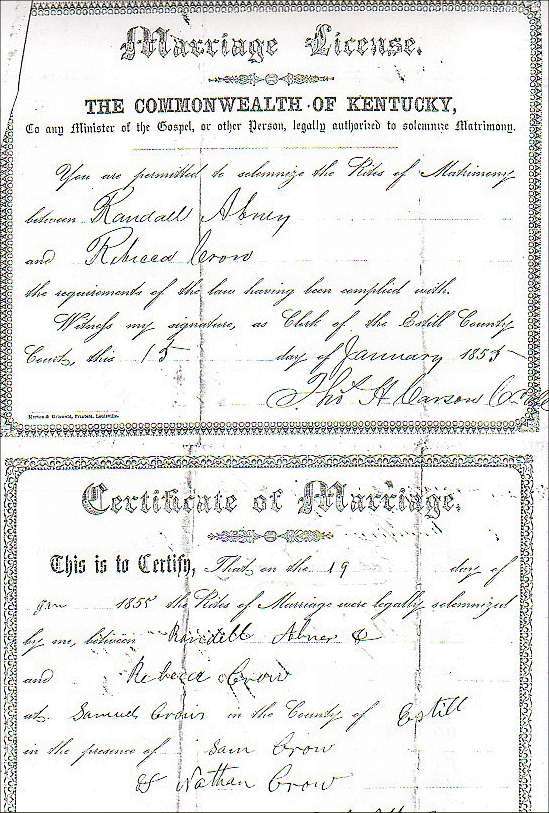 Marriage License.
THE COMMONWEALTH OF KENTUCKY,
To any Minister of the Gospel, or other Person, legally authorized to solemnize Matrimony.
You are permitted to solemnize the Rites of Matrimony
between Randall Abney
and Rebecca Crow
the requirements of the law having been complied with.
Witness my signature, as Clerk of the Estill County
Court, this 15 day of January 1855
Thos H Carson
Morton & Griswold, Printers, Louisville.
Certificate of Marriage.
This is to Certify, That on the 19 day of
Jan 1855 the Rites of Marriage were legally solemnized
by me, between Randell Abner &
and Rebeca Crow
at Samuel Crows in the County of Estill
in the presence of Sam Crow
& Nathan Crow